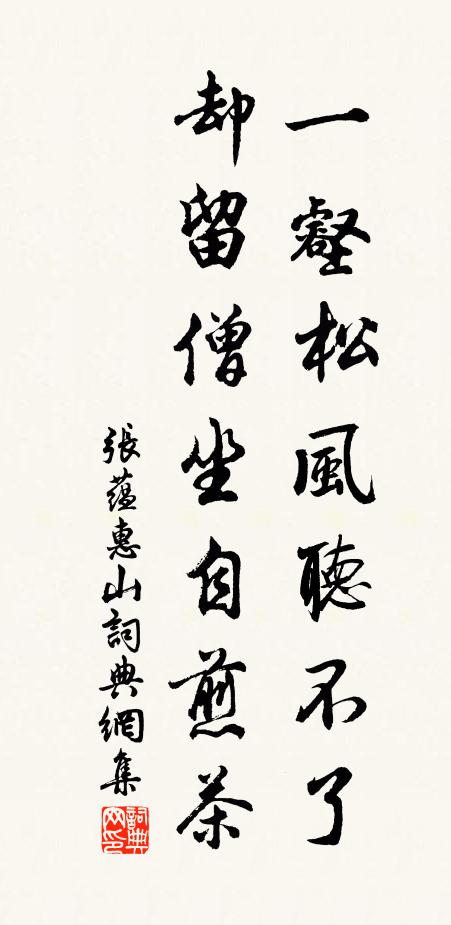 一壑松風聽不了
却留僧坐自煎茶
張蘊惠山詞典網集
詞典
网印